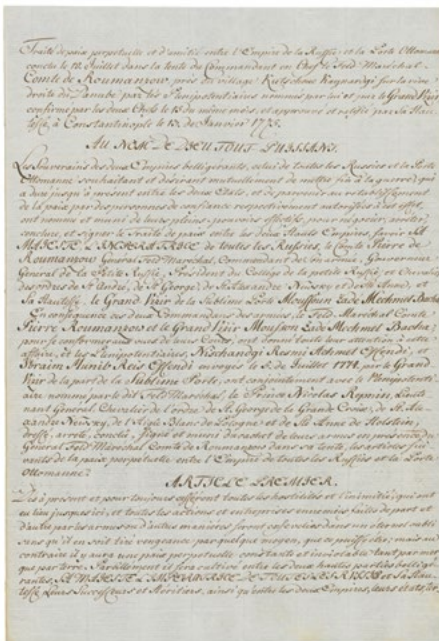 Traité de paix perpetuelle et d'amitié entre l'Empire de la Russie et la Porte Ottomane
conclu le 10. Juillet dans la tente du Commandant en Chef le Feld Maréchal
Comte de Roumanzow près du village Kutschouc Kaynardgi sur la rive
droite du Danube par les Plenipotentiaires nommés par lui et par le Grand Vizir
confirmé par les deux Chefs le 15 du même mois, et approuvé et ratifié par Sa Hau-
tesse, à Constantinople le 13. de Janvier 1775.
AU NOM DE DIEU TOUT PUISSANT.
Les Souverains des deux Empires belligérants, celui de toutes les Russies et la Porte
Ottomanne souhaitant et désirant mutuellement de mettre fin à la guerre qui
a duré jusqu'à présent entre les deux Etats, et de parvenir au retablissement
de la paix par des personnes de confiance respectivement autorisées à cet effet
ont nommé et muni de leurs pleins-pouvoirs effectifs, pour négocier, arrêter,
conclure, et signer le Traité de paix entre les deux Hauts Empires, savoir SA
MAJESTE L'IMPERATRICE de toutes les Russies, le Comte Pierre de
Roumanzow Général Feld Maréchal, Commandant de son armée, Gouverneur
Général de la Petite Russie, Président du Collège de la petite Russie, et Chevalier
des ordres de St André, de St George, de St Alexandre Newsky et de Ste Anne, et
Sa Hautesse, le Grand Vizir de la Sublime Porte Moussoun Zade Mechmet Bacha.
En conséquence ces deux Commandans des armées, le Feld Maréchal Comte
Pierre Roumanzow et le Grand Vizir Moussoun Zade Mechmet Bacha,
pour se conformer aux vues de leurs Cours, ont donné toute leur attention à cette
affaire, et les Plenipotentiaires Nischandgi Resmi Achmet Effendi, et
Ibraim Munib Reis Effendi envoyés le 5. de Juillet 1774, par le Grand
Vizir de la part de la Sublime Porte, ont conjointement avec le Plenipotenti-
aire nommé par le dit Feld Maréchal, le Prince Nicolas Repnin, Lieute-
nant Général, Chevalier de l'ordre de St. George de la Grande Croix, de St. Ale-
xandre Newsky, de l'Aigle Blanc de Pologne et de Ste Anne de Holstein,
dressé, arrêté, conclu, signé et muni du cachet de leurs armes en présence du
Général Feld Maréchal Comte de Roumanzow dans sa tente, les articles sui-
vants de la paix perpetuelle entre l'Empire de toutes les Russies et la Porte
Ottomanne.
ARTICLE PREMIER.
Dès à présent et pour toujours cesseront toutes les hostilités et l'inimitié qui ont
eu lieu jusques ici, et toutes les actions et entreprises ennemies faites de part et
d'autre par les armes ou d'autres manières seront ensevelies dans un éternel oubli
sans qu'il en soit tiré vengeance par quelque moyen que ce puisse être; mais au
contraire il y aura une paix perpetuelle constante et inviolable tant par mer
que par terre. Pareillement il sera cultivé entre les deux hautes parties bellige-
rantes, SA MAJESTE L'IMPERATRICE DE TOUTES LES RUSSIES et Sa Hau-
tesse, Leurs Successeurs et Héritiers, ainsi qu'entre les deux Empires, leurs états, ter-